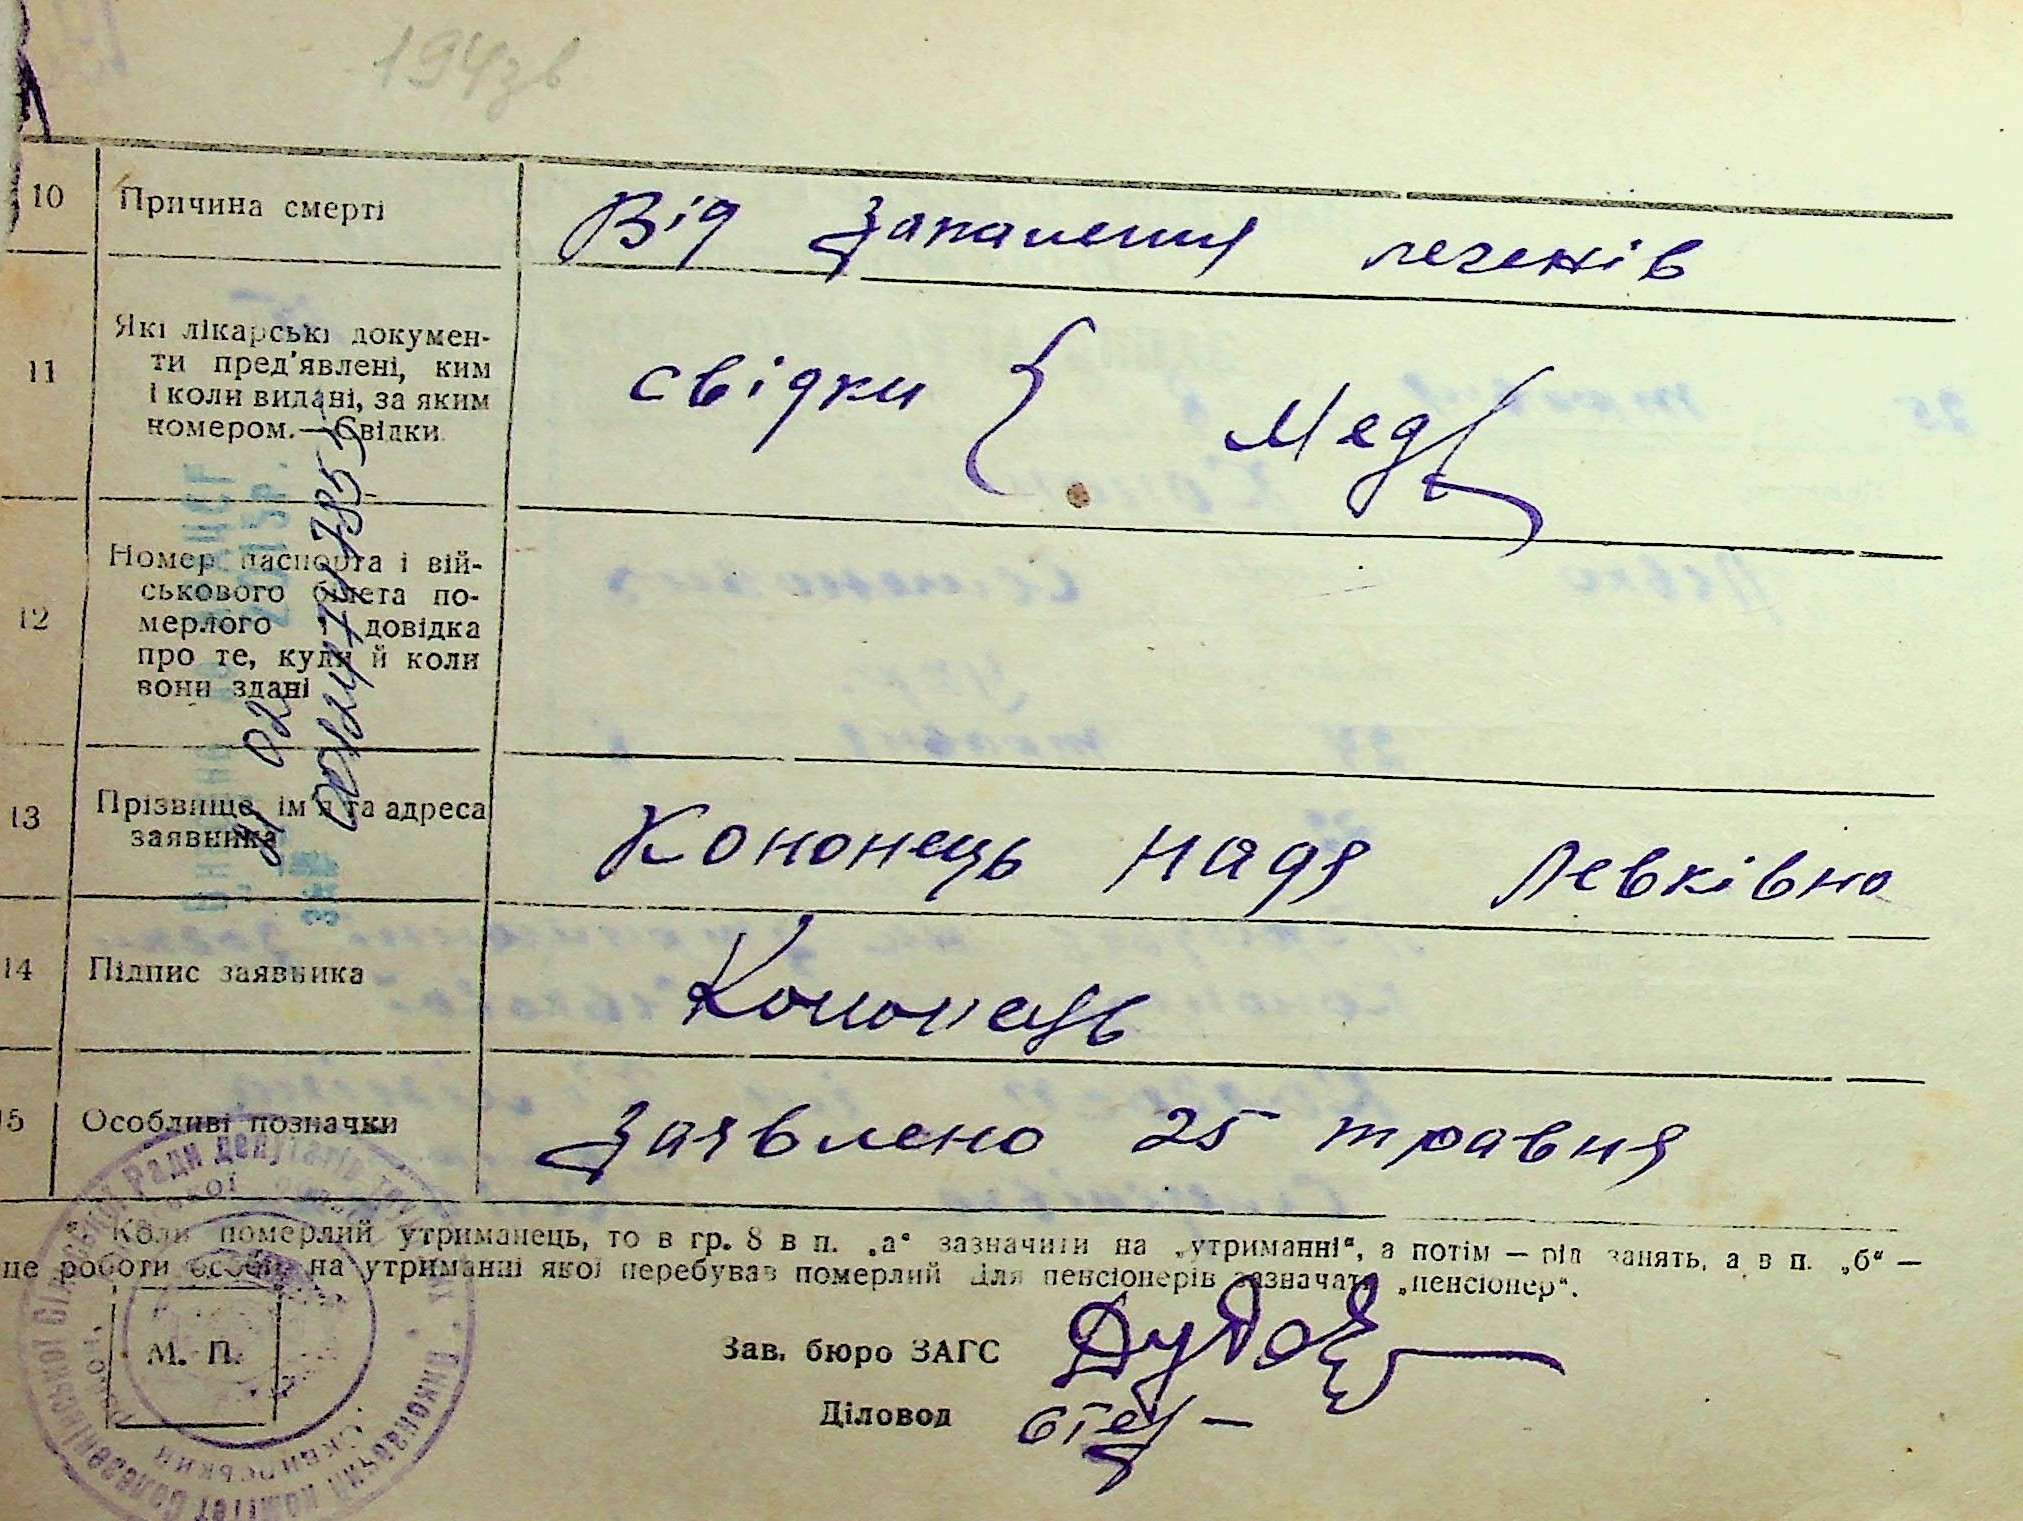 194зв
10 Причина смерті Від запалення леченів
11 Які лікарські докумен-
ти пред'явлені, ким
і коли видані, за яким
номером.—Свідки.
свідки {
12 Номер паспорта і вій-
ськового білета по-
мерлого і довідка
про те, куди й коли
вони здані
13 Прізвище, ім'я та адреса
заявника
Кононець Надя Левківна
14 Підпис заявника Кононець
15 Особливі позначки Заявлено 25 травня
* Коли померлий утриманець, то в гр. 8 в п. „а“ зазначити на „утриманні“, а потім — рід занять, а в п. „б“ —
це роботи особи на утриманні якої перебував померлий Для пенсіонерів зазначати „пенсіонер“.
Зав. бюро ЗАГС
Діловод
М. П.